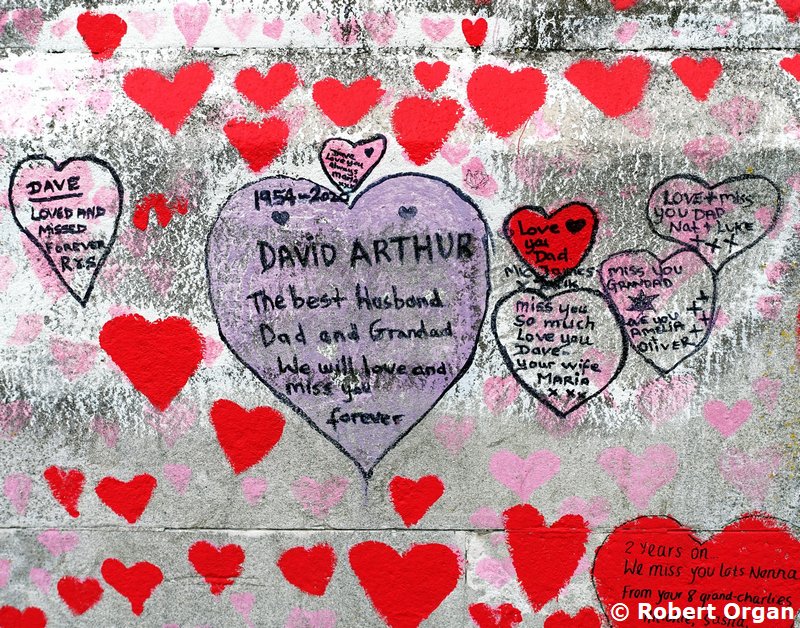 DAVE
LOVED AND
MISSED
FOREVER
1954-2020
DAVID ARTHUR
The best Husband
Dad and Grandad
We will love and
miss you
forever
Love
you
Dad
miss you
So much
Love you
Dave-
your wife
MARIA
x xx
LOVE + miss
YOU DAD
Nat + LUKE
x x x
miss you
GRANDAD
Love you
AMELIA
OLIVER
2 years on
We miss you lots Nenna
From your 8 grand-charlies
© Robert Organ